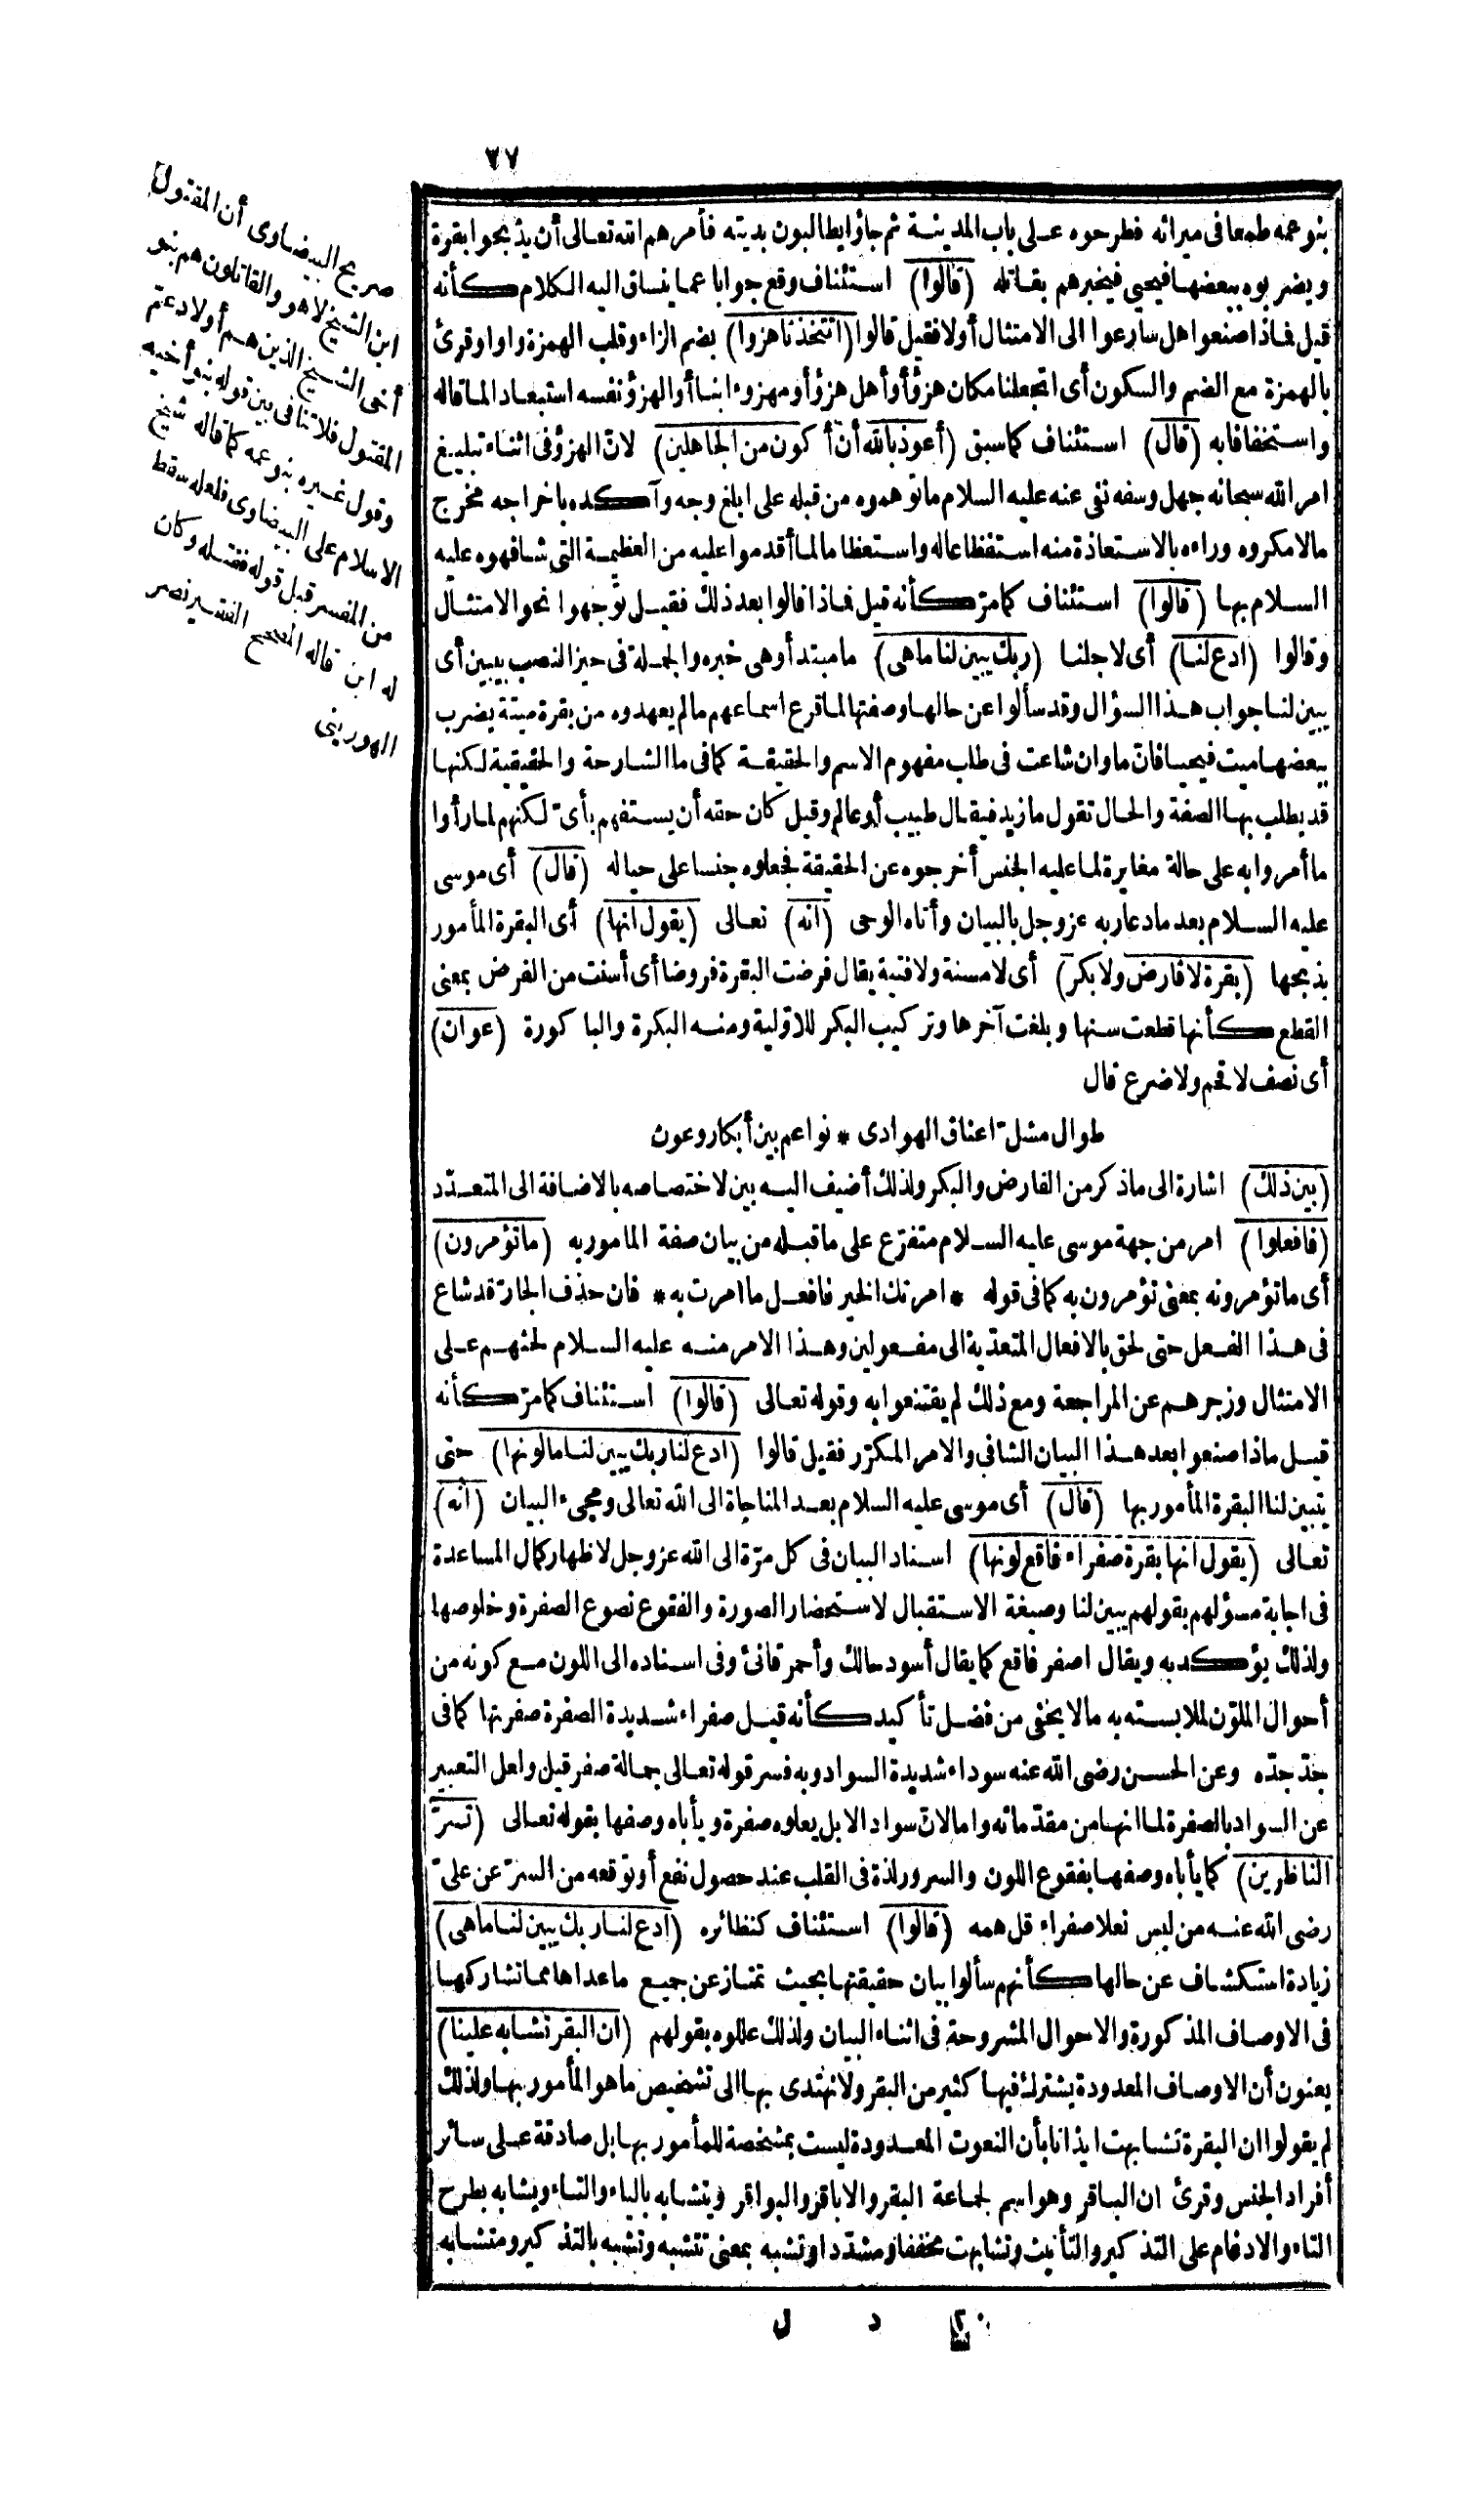 ٧٧
بنو عمه طمعا فى ميراثه فطرحوه على باب المدينة ثم جاؤا يطالبون بديته فأمرهم الله تعالى أن يذبحوا بقرة
ويضربوه ببعضها فيحيى فيخبرهم بقاتله (قالوا) استئناف وقع جوابا عما ينساق اليه الكلام كأنه
قيل فماذا صنعوا هل سارعوا الى الامتثال أولا فقيل قالوا (اتتخذنا هزوا) بضم الزاء وقلب الهمزة واوا وقرئ
بالهمزة مع الضم والسكون أى اتجعلنا مكان هزؤ أو أهل هزؤ أو مهزوء ابنا أو الهزؤ نفسه استبعادا لما قاله
واستخفافا به (قال) استئناف كما سبق (أعوذ بالله أن أكون من الجاهلين) لان الهزؤ فى اثناء تبليغ
امر الله سبحانه جهل وسفه نفى عنه عليه السلام ما توهموه من قبله على ابلغ وجه وآكده باخراجه مخرج
مالا مكروه وراءه بالاستعاذة منه استفظاعا له واستعظاما لما أقدموا عليه من العظيمة التى شافهوه عليه
السلام بها (قالوا) استئناف كما مرّ كأنه قيل فماذا قالوا بعد ذلك فقيل توجهوا نحو الامتثال
وقالوا (ادع لنا) أى لاجلنا (ربك يبين لنا ماهى) ما مبتدأ وهى خبره والجملة فى حيز النصب بيبين أى
يبين لنا جواب هذا السؤال وقد سألوا عن حالها وصفتها لما قرع اسماعهم ما لم يعهدوه من بقرة ميتة يضرب
ببعضها ميت فيحيا فان ما وان شاعت فى طلب مفهوم الاسم والحقيقة كما فى ما الشارحة والحقيقية لكنها
قد يطلب بها الصفة والحال تقول ما زيد فيقال طبيب أو عالم وقيل كان حقه أن يستفهم بأىّ لكنهم لما رأوا
ما أمروا به على حالة مغايرة لما عليه الجنس أخرجوه عن الحقيقة فجعلوه جنسا على حياله (قال) أى موسى
عليه السلام بعد ما دعا ربه عز وجل بالبيان وأتاه الوحى (انه) تعالى (يقول انها) أى البقرة المأمور
بذبحها (بقرة لا فارض ولا بكر) أى لا مسنة ولا فتية يقال فرضت البقرة فروضا أى أسنت من الفرض بمعنى
القطع كأنها قطعت سنها وبلغت آخرها وتركيب البكر للاوّلية ومنه البكرة والباكورة (عوان)
أى نصف لا قحم ولا ضرع قال
طوال مشل اعناق الهوادى * نواعم بين أبكار وعون
(بين ذلك) اشارة الى ما ذكر من الفارض والبكر ولذلك أضيف اليه بين لاختصاصه بالاضافة الى المتعدّد
(فافعلوا) امر من جهة موسى عليه السلام متفرّع على ما قبله من بيان صفة المامور به (ما تؤمرون)
أى ما تؤمرونه بمعنى تؤمرون به كما فى قوله * امرتك الخير فافعل ما امرت به * فان حذف الجارّ قد شاع
فى هذا الفعل حتى لحق بالافعال المتعدّية الى مفعولين وهذا الامر منه عليه السلام لحثهم على
الامتثال وزجرهم عن المراجعة ومع ذلك لم يقتنعوا به وقوله تعالى (قالوا) استئناف كما مرّ كأنه
قيل ماذا صنعوا بعد هذا البيان الشافى والامر المكرّر فقيل قالوا (ادع لنا ربك يبين لنا ما لونها) حتى
يتبين لنا البقرة المأمور بها (قال) أى موسى عليه السلام بعد المناجاة الى الله تعالى ومجىء البيان (انه)
تعالى (يقول انها بقرة صفراء فاقع لونها) اسناد البيان فى كل مرّة الى الله عز وجل لاظهار كمال المساعدة
فى اجابة مسؤلهم بقولهم يبين لنا وصيغة الاستقبال لاستحضار الصورة والفقوع نصوع الصفرة وخلوصها
ولذلك يؤكد به ويقال اصفر فاقع كما يقال أسود حالك وأحمر قانئ وفى اسناده الى اللون مع كونه من
أحوال الملوّن لملابسته به مالا يخفى من فضل تأكيد كأنه قيل صفراء شديدة الصفرة صفرتها كما فى
جدّ جدّه وعن الحسن رضى الله عنه سوداء شديدة السواد وبه فسر قوله تعالى جمالة صفر قيل ولعل التعبير
عن السواد بالصفرة لما انها من مقدّماته واما لان سواد الابل يعلوه صفرة ويأباه وصفها بقوله تعالى (تسرّ
الناظرين) كما يأباه وصفها بفقوع اللون والسرور لذة فى القلب عند حصول نفع أو توقعه من السرّ عن علىّ
رضى الله عنه من لبس نعلا صفراء قل همه (قالوا) استئناف كنظائره (ادع لنا ربك يبين لنا ماهى)
زيادة استكشاف عن حالها كأنهم سألوا بيان حقيقتها بحيث تمتاز عن جميع ما عداها مما تشاركها
فى الاوصاف المذكورة والاحوال المشروحة فى اثناء البيان ولذلك عللوه بقولهم (ان البقر تشابه علينا)
يعنون أن الاوصاف المعدودة يشترك فيها كثير من البقر ولا نهتدى بها الى تشخيص ما هو المأمور بها ولذلك
لم يقولوا ان البقرة تشابهت ايذانا بأن النعوت المعدودة ليست بمشخصة للمأمور بها بل صادقة على سائر
أفراد الجنس وقرئ ان الباقر وهو اسم لجماعة البقر والاباقر والبواقر ويتشابه بالياء والتاء ويشابه بطرح
التاء والادغام على التذكير والتأنيث وتشابهت مخففا ومشدّدا وتشبه بمعنى تتشبه وتشبه بالتذكير ومتشابه
٢٠ د ل
صريح البيضاوى أن المقتول
ابن الشيخ لا هو والقاتلون هم بنو
أخى الشيخ الذين هم أولاد عم
المقتول فلا تنافى بين قوله بنو أخيه
وقول غيره بنو عمه كما قاله شيخ
الاسلام على البيضاوى فلعله سقط
من المفسر قبل قوله فقتله وكان
له ابن قاله المصحح الفقير نصر
الهورينى